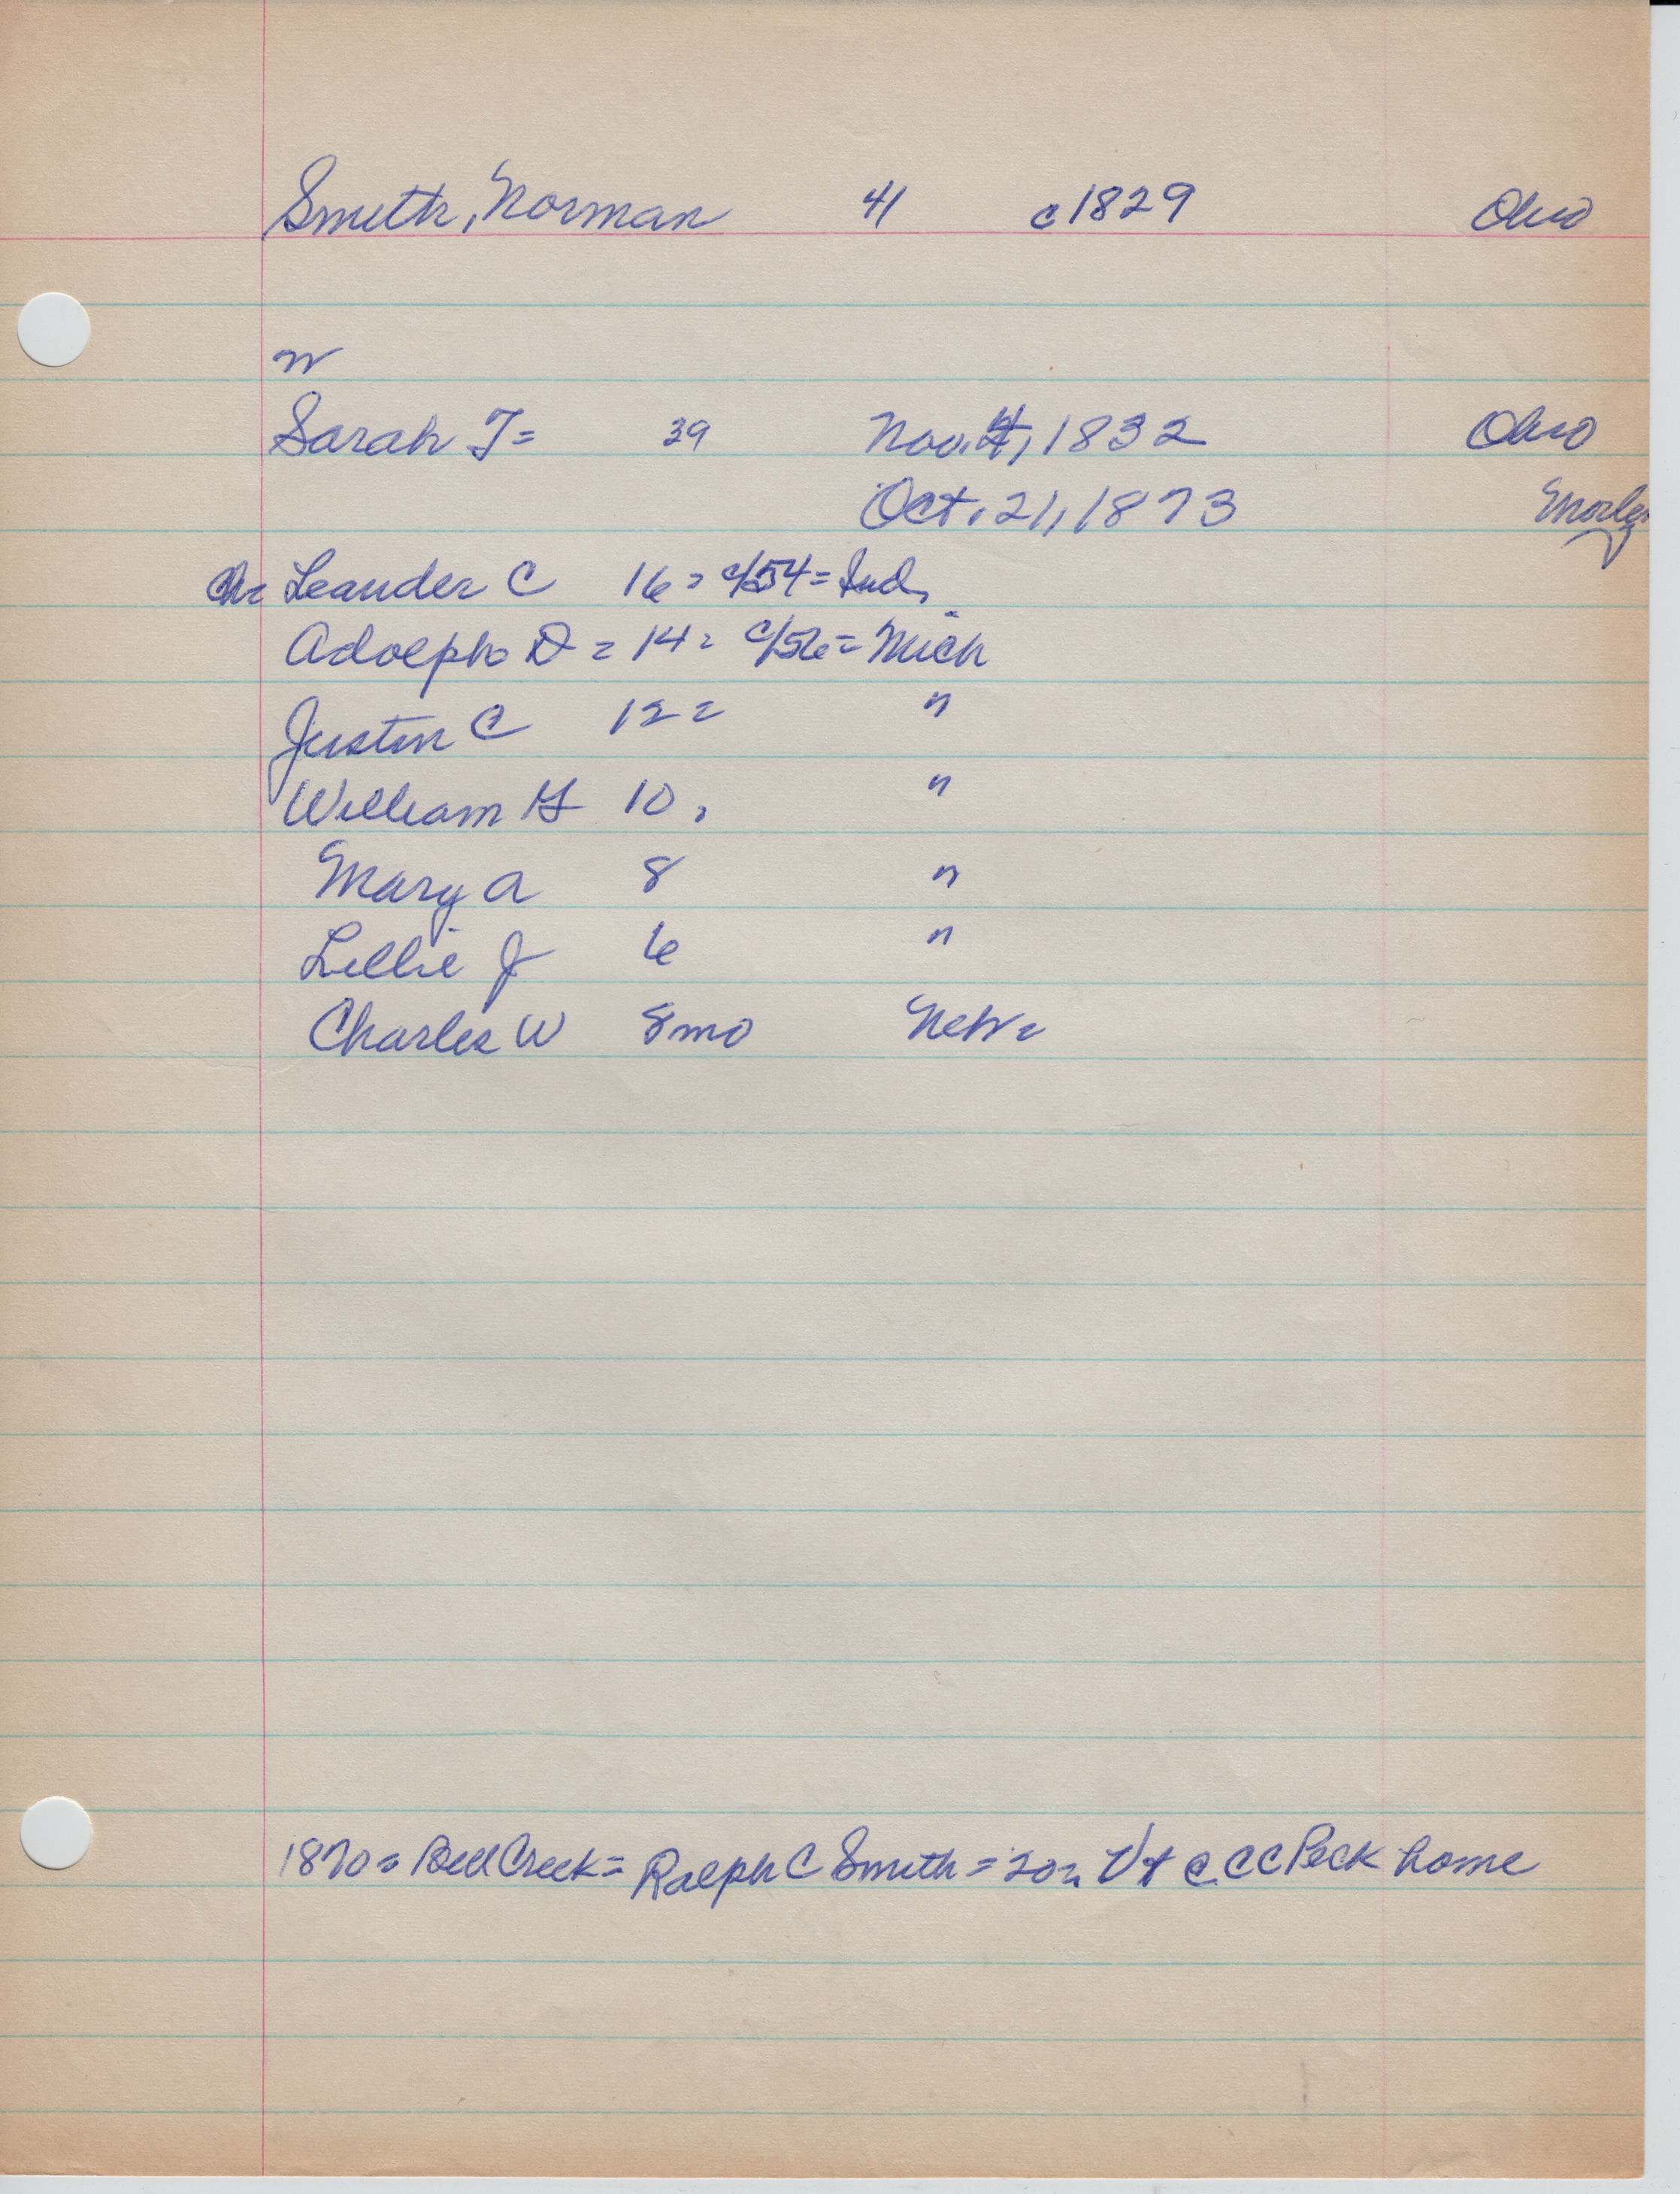 Smith, Norman 41 c1829 Ohio
W
Sarah T= 39 Nov. 4, 1832 Ohio
Oct. 21, 1873
Ch= Leander C 16= c/54= Ind,
Adolph D = 14= c/56= Mich
Justin C 12= "
William H 10, "
Mary A 8 "
Lillie J 6 "
Charles W 8mo Nebr
1870= Bell Creek= Ralph C Smith= 20= Vt @ CC Peck home